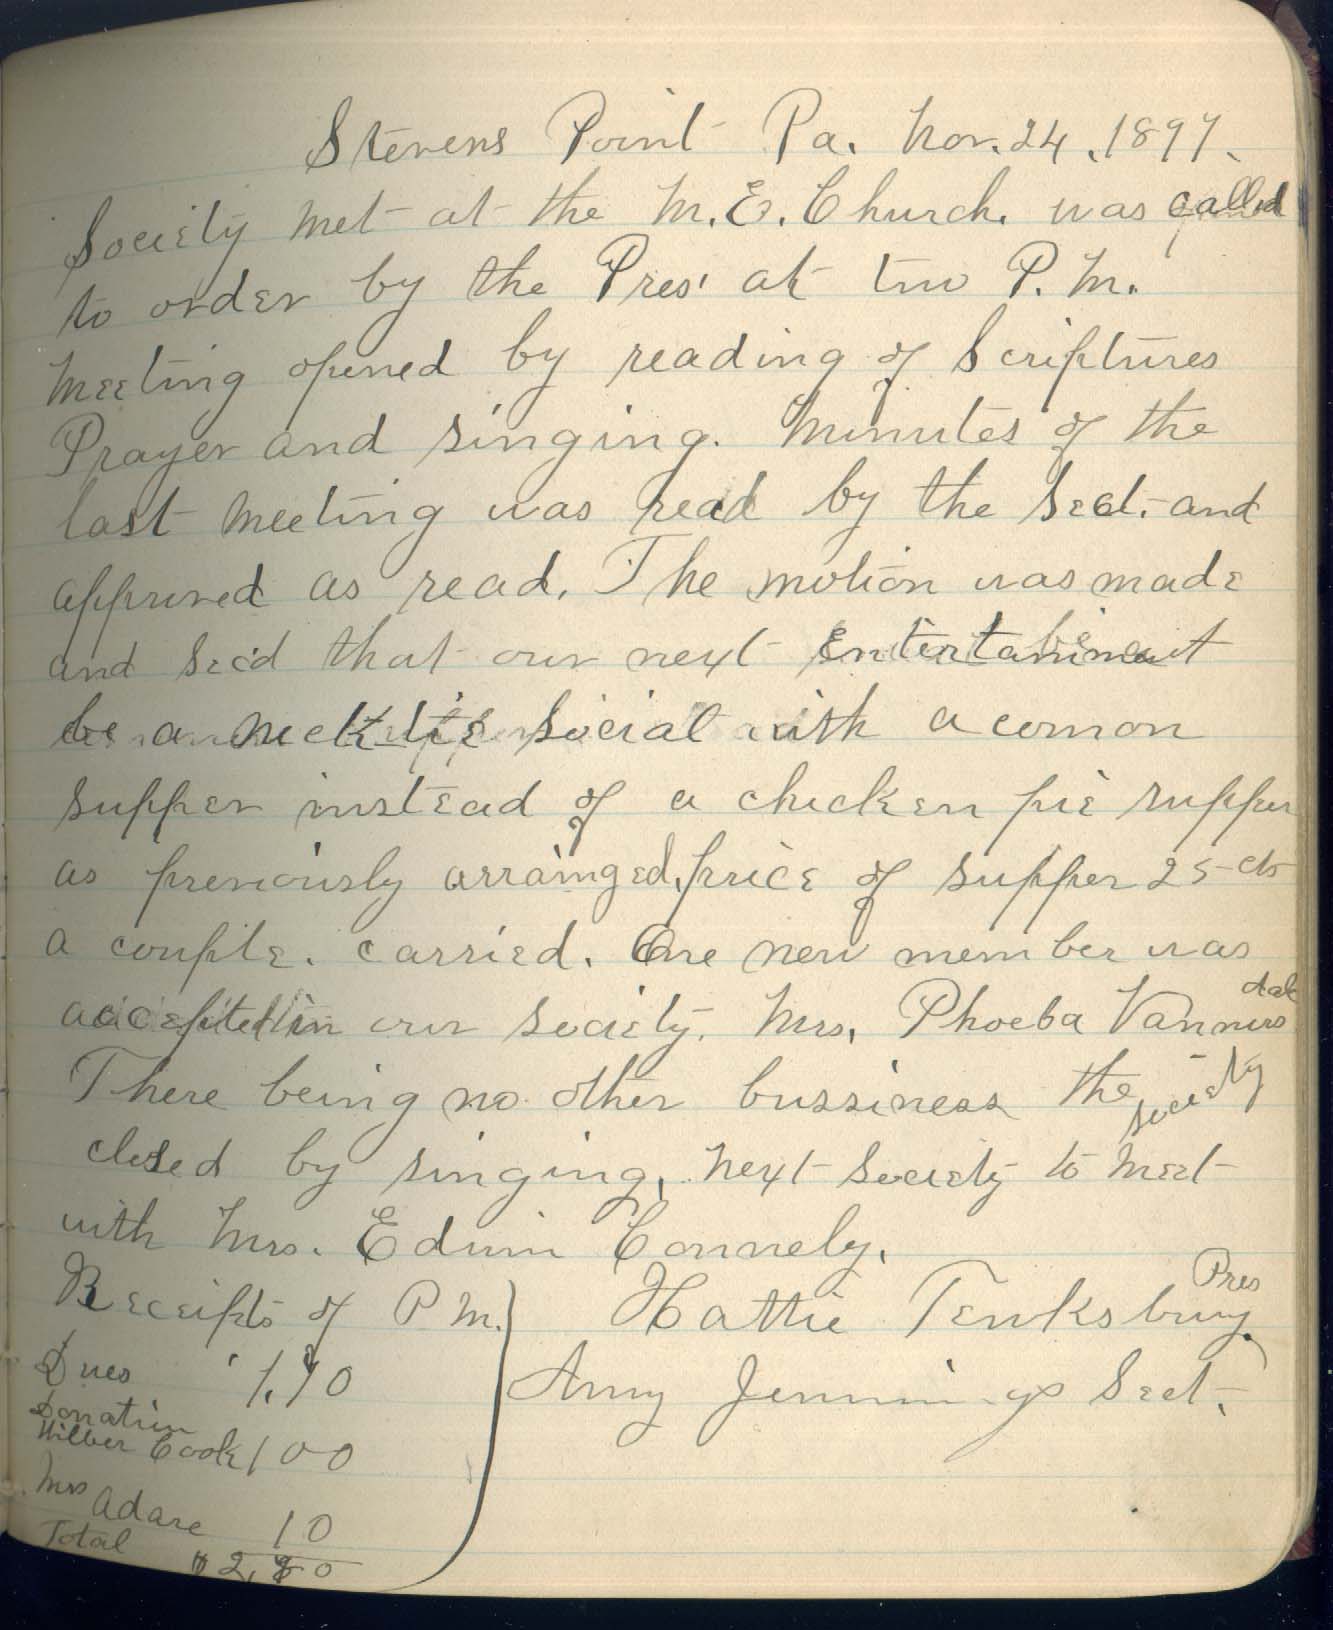 Stevens Point Pa. Nov. 24, 1897.
Society met at the M.E. Church. was called
to order by the Pres' at two P.M.
Meeting opened by reading of Scriptures
Prayer and singing. Minutes of the
last meeting was read by the Sect. and
approved as read. The motion was made
and Sec'd that our next Entertainment
be a neck tie social with a comon
supper instead of a chicken pie supper
as previously arrainged, price of supper 25-cts
a couple. carried. One new member was
accepted in our society. Mrs. Phoeba Vannus
dal
There being no other bussiness the society
closed by singing, next Society to meet
with Mrs. Edwin Connely.
Receipts of P M.
Dues 1.70
Donation
Wilber Cook 1 00
Mrs Adare 10
Total $2.80
Hattie Tenksbury Pres
Amy Jennings Sect.